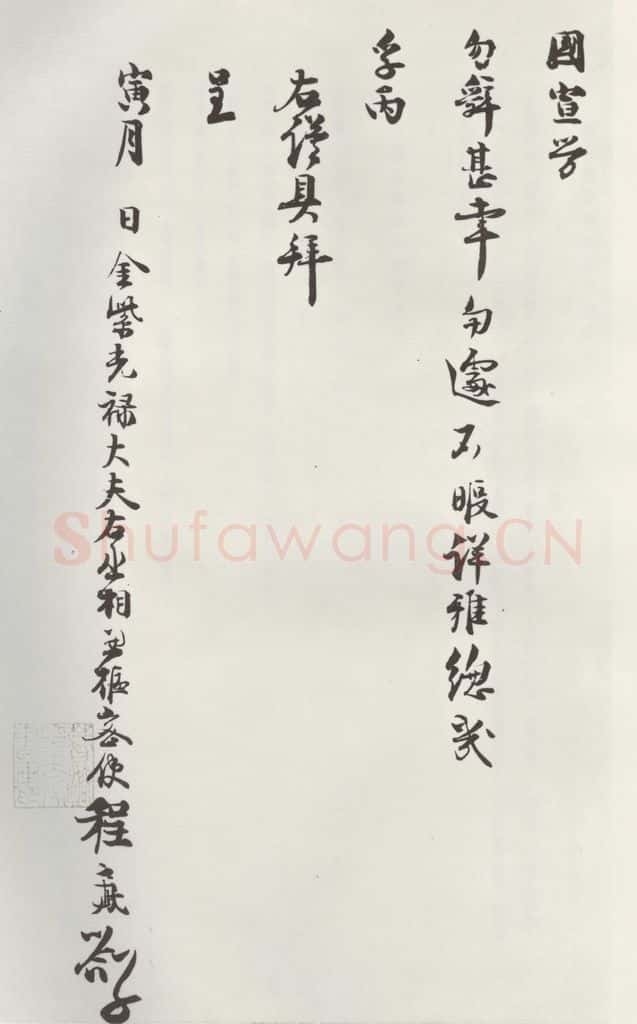 國宣勞
勿辭甚幸匆遽不暇詳雅總幾
孚丙
右謹具拜
呈
寅月 日 金紫光祿大夫右丞相兼樞密使程 劄子
Shufawang.CN